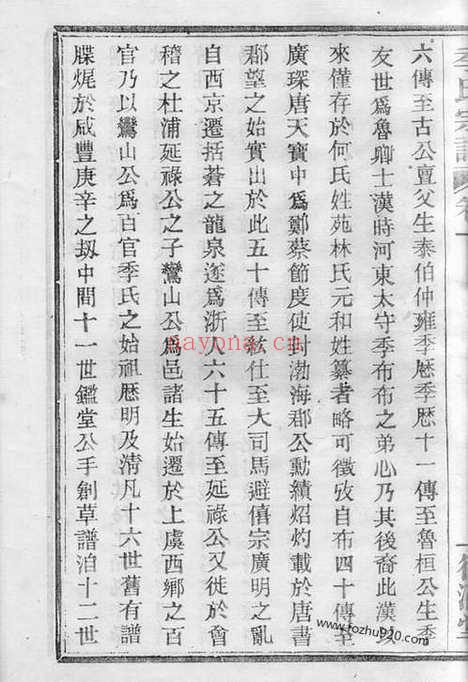 季氏宗譜
六傳至古公亶父生泰伯仲雍季歷季歷十一傳至魯桓公生季
友世爲魯卿士漢時河東太守季布布之弟心乃其後裔此漢後
來僅存於何氏姓苑林氏元和姓纂者略可徵攷自布四十傳至
廣琛唐天寶中爲鄭蔡節度使封渤海郡公勳績炤灼載於唐書
郡望之始實出於此五十傳至紘仕至大司馬避僖宗廣明之亂
自西京遷括蒼之龍泉遂爲浙人六十五傳至延祿公又徙於會
稽之杜浦延祿公之子鸞山公爲邑諸生始遷於上虞西鄉之百
官乃以鸞山公爲百官季氏之始祖歷明及清凡十六世舊有譜
牒燬於咸豐庚辛之刼中間十一世鑑堂公手創草譜洎十二世
nayona.cn
www.fozhu920.com